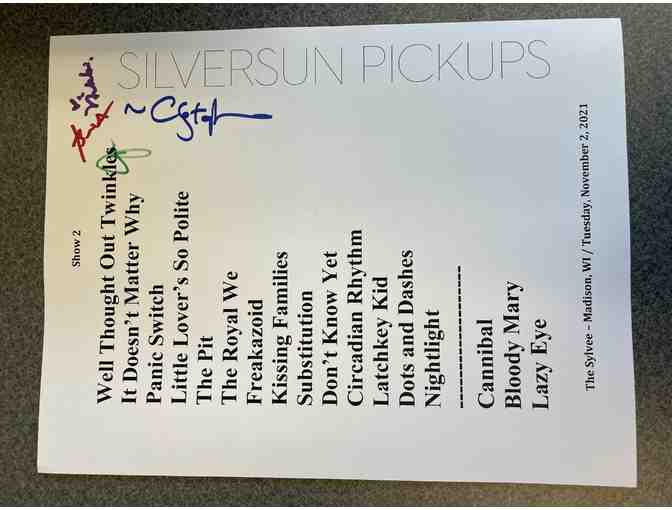 SILVERSUN PICKUPS
Show 2
Well Thought Out Twinkles
It Doesn't Matter Why
Panic Switch
Little Lover's So Polite
The Pit
The Royal We
Freakazoid
Kissing Families
Substitution
Don't Know Yet
Circadian Rhythm
Latchkey Kid
Dots and Dashes
Nightlight
--------------------
Cannibal
Bloody Mary
Lazy Eye
The Sylvee – Madison, WI / Tuesday, November 2, 2021